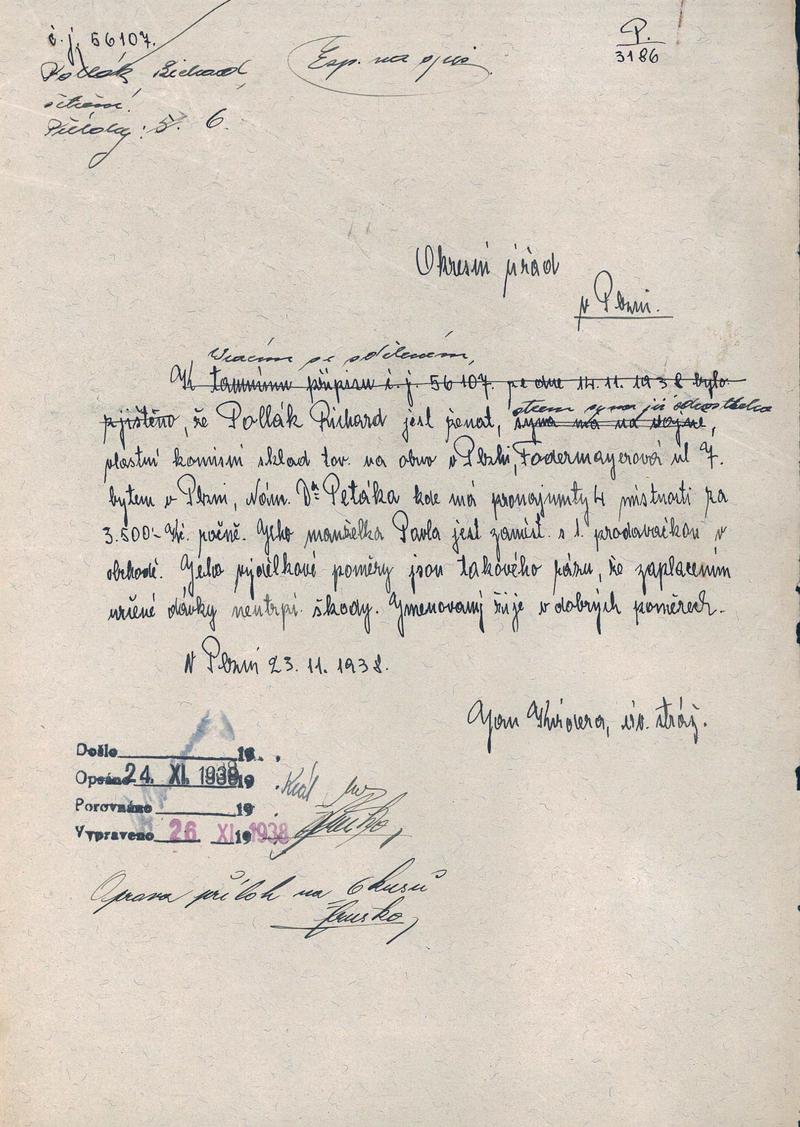 č. j. 56107.
Pollák Richard,
šetření.
Přílohy: 5. 6.
Exp. na spis
P.
3186
Okresní úřad
v Plzni.
Vracím se sdělením,
K tamnímu přípisu č. j. 56107. ze dne 14. 11. 1938 bylo
zjištěno, že Pollák Richard jest ženat, syna má na vojně,
otcem syna již odrostlého
vlastní komisní sklad tov. na obuv v Plzni, Fodermayerová ul 7.
bytem v Plzni, Nám. Dra Petáka kde má pronajmuty 4 místnosti za
3.500·- Kč. ročně. Jeho manželka Pavla jest zaměst. s 1. prodavačkou v
obchodě. Jeho výdělkové poměry jsou takového rázu, že zaplacením
určené dávky neutrpí škody. Jmenovaný žije v dobrých poměrech.
V Plzni 23. 11. 1938.
Jan, úř. stráž.
Došlo 19
Opsáno 24. XI. 1938 19
Král
Porovnáno 19
Vypraveno 26 XI. 1938 19
Oprava příloh na 6 kusů